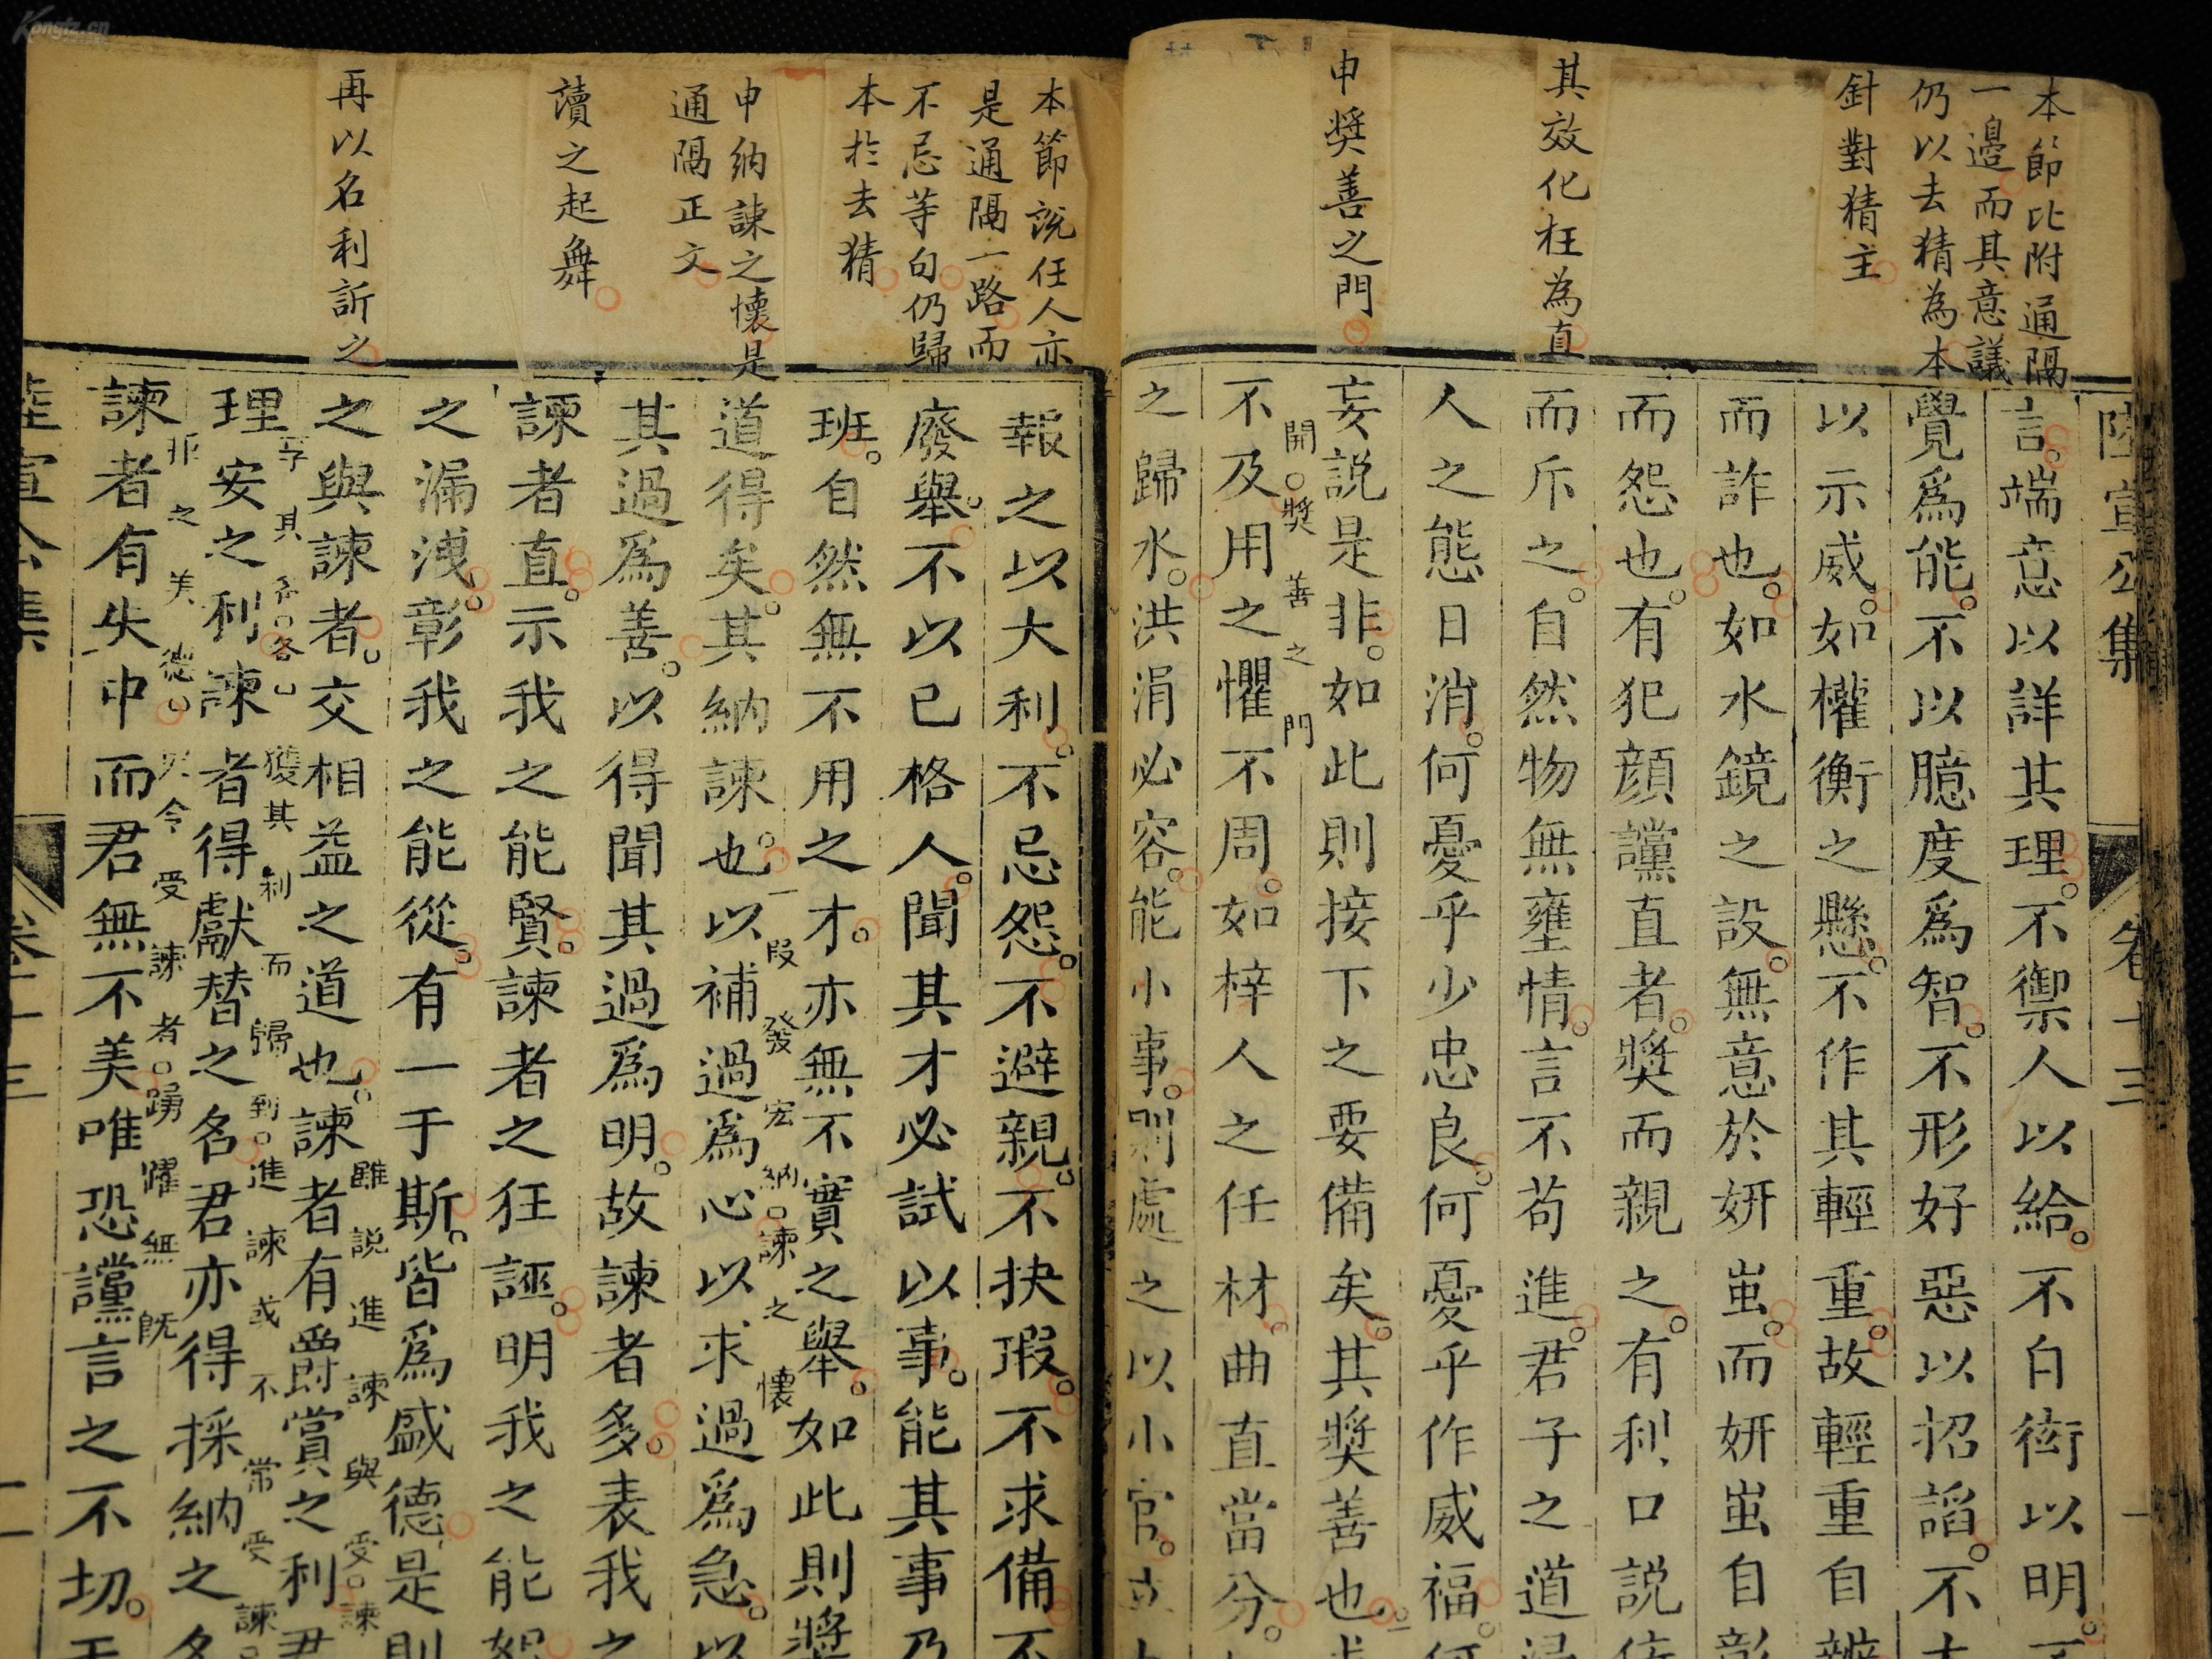 Kongfz.cn
本節比附通隔
一邊而其意議
仍以去猜為本
針對猜主
其效化枉為直
申獎善之門
陸宣公集
卷十三
言端意以詳其理不禦人以給不自衒以明
覺爲能不以臆度爲智不形好惡以招諂不
以示威如權衡之懸不作其輕重故輕重自
而詐也如水鏡之設無意於妍蚩而妍蚩自
而怨也有犯顔讜直者獎而親之有利口說
而斥之自然物無壅情言不苟進君子之道
人之態日消何憂乎少忠良何憂乎作威福
妄説是非如此則接下之要備矣其獎善也
開獎善之門
不及用之懼不周如梓人之任材曲直當分
之歸水洪涓必容能小事則處之以小官
本節說任人亦
是通隔一路而
不忌等句仍歸
本於去猜
申納諫之懷是
通隔正文
讀之起舞
再以名利訢之
報之以大利不忌怨不避親不抉瑕不求備不
廢舉不以已格人聞其才必試以事能其事乃
班自然無不用之才亦無不實之舉如此則獎
一段發宏納諫之懷
道得矣其納諫也以補過爲心以求過爲急以
其過爲善以得聞其過爲明故諫者多表我之
諫者直示我之能賢諫者之狂誣明我之能恕
之漏洩彰我之能從有一于斯皆爲盛德是則
之與諫者交相益之道也諫者有爵賞之利君
雖說進諫與受諫
理安之利諫者得獻替之名君亦得採納之名
享其名各獲其利而歸到進諫或不常受諫
諫者有失中而君無不美唯恐讜言之不切
非之美德以令受諫者踴懼無旣
陸宣公集
卷十三